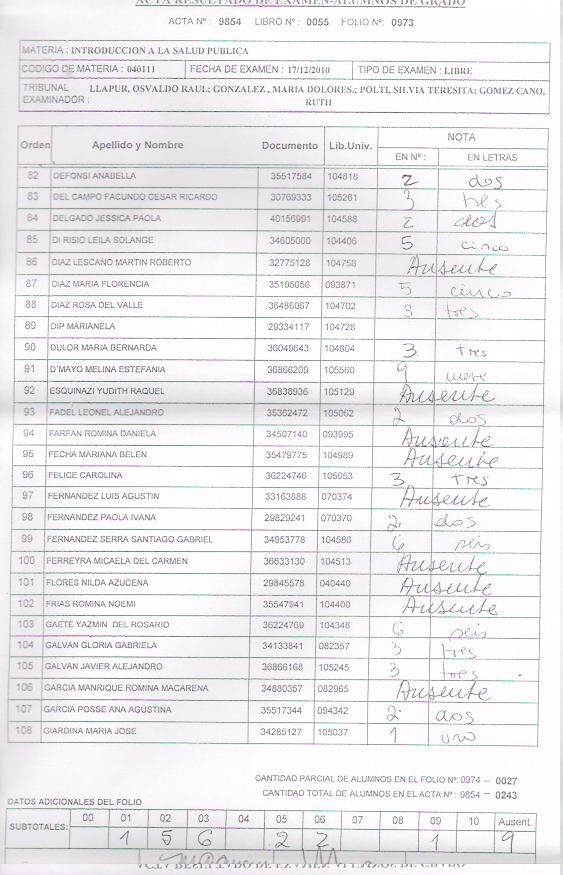 ACTA RESULTADO DE EXAMEN-ALUMNOS DE GRADO
ACTA Nº : 9854 LIBRO Nº : 0055 FOLIO Nº: 0973
MATERIA : INTRODUCCION A LA SALUD PUBLICA
CODIGO DE MATERIA : 040111 FECHA DE EXAMEN : 17/12/2010 TIPO DE EXAMEN : LIBRE
TRIBUNAL EXAMINADOR : LLAPUR, OSVALDO RAUL; GONZALEZ , MARIA DOLORES.; POLTI, SILVIA TERESITA; GOMEZ CANO,
RUTH
Orden Apellido y Nombre Documento Lib.Univ. NOTA
EN Nº : EN LETRAS
82 DEFONSI ANABELLA 35517584 104818 2 dos
83 DEL CAMPO FACUNDO CESAR RICARDO 30769333 105261 3 tres
84 DELGADO JESSICA PAOLA 40156991 104588 2 dos
85 DI RISIO LEILA SOLANGE 34605000 104406 5 cinco
86 DIAZ LESCANO MARTIN ROBERTO 32775128 104758 Ausente
87 DIAZ MARIA FLORENCIA 35195056 093871 5 cinco
88 DIAZ ROSA DEL VALLE 36486067 104702 3 tres
89 DIP MARIANELA 29334117 104728
90 DULOR MARIA BERNARDA 36049643 104804 3 tres
91 D´MAYO MELINA ESTEFANIA 36866209 105560 9 nueve
92 ESQUINAZI YUDITH RAQUEL 36838936 105129 Ausente
93 FADEL LEONEL ALEJANDRO 35362472 105062 2 dos
94 FARFAN ROMINA DANIELA 34507140 093995 Ausente
95 FECHA MARIANA BELEN 35479775 104989 Ausente
96 FELICE CAROLINA 36224746 105053 3 tres
97 FERNANDEZ LUIS AGUSTIN 33163888 070374 Ausente
98 FERNANDEZ PAOLA IVANA 29829241 070370 2 dos
99 FERNANDEZ SERRA SANTIAGO GABRIEL 34953778 104586 6 seis
100 FERREYRA MICAELA DEL CARMEN 36633130 104513 Ausente
101 FLORES NILDA AZUCENA 29845578 040440 Ausente
102 FRIAS ROMINA NOEMI 35547941 104400 Ausente
103 GAETE YAZMIN DEL ROSARIO 36224769 104348 6 seis
104 GALVAN GLORIA GABRIELA 34133841 082357 3 tres
105 GALVAN JAVIER ALEJANDRO 36866168 105245 3 tres
106 GARCIA MANRIQUE ROMINA MACARENA 34880357 082965 Ausente
107 GARCIA POSSE ANA AGUSTINA 35517344 094342 2 dos
108 GIARDINA MARIA JOSE 34285127 105037 1 uno
CANTIDAD PARCIAL DE ALUMNOS EN EL FOLIO Nº: 0974 – 0027
CANTIDAD TOTAL DE ALUMNOS EN EL ACTA Nº: 9854 – 0243
DATOS ADICIONALES DEL FOLIO
SUBTOTALES: 00 01 02 03 04 05 06 07 08 09 10 Ausent.
1 5 6 2 2 1 9